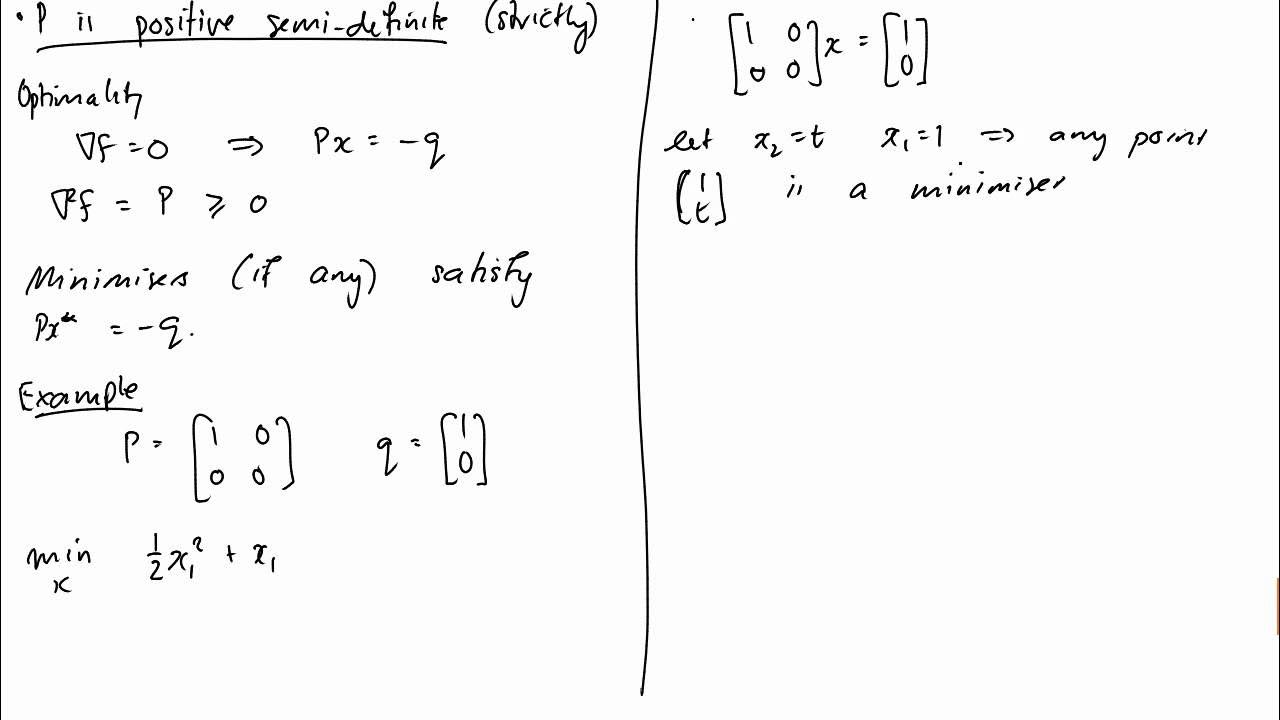 • P is positive semi-definite (strictly)
Optimality
∇f = 0 ⇒ Px = -q
∇²f = P ⩾ 0
Minimisers (if any) satisfy
Px* = -q.
Example
P = [1 0; 0 0] q = [1; 0]
min_x ½x₁² + x₁
[1 0; 0 0] x = [1; 0]
let x₂ = t x₁ = 1 ⇒ any point
[1; t] is a minimiser